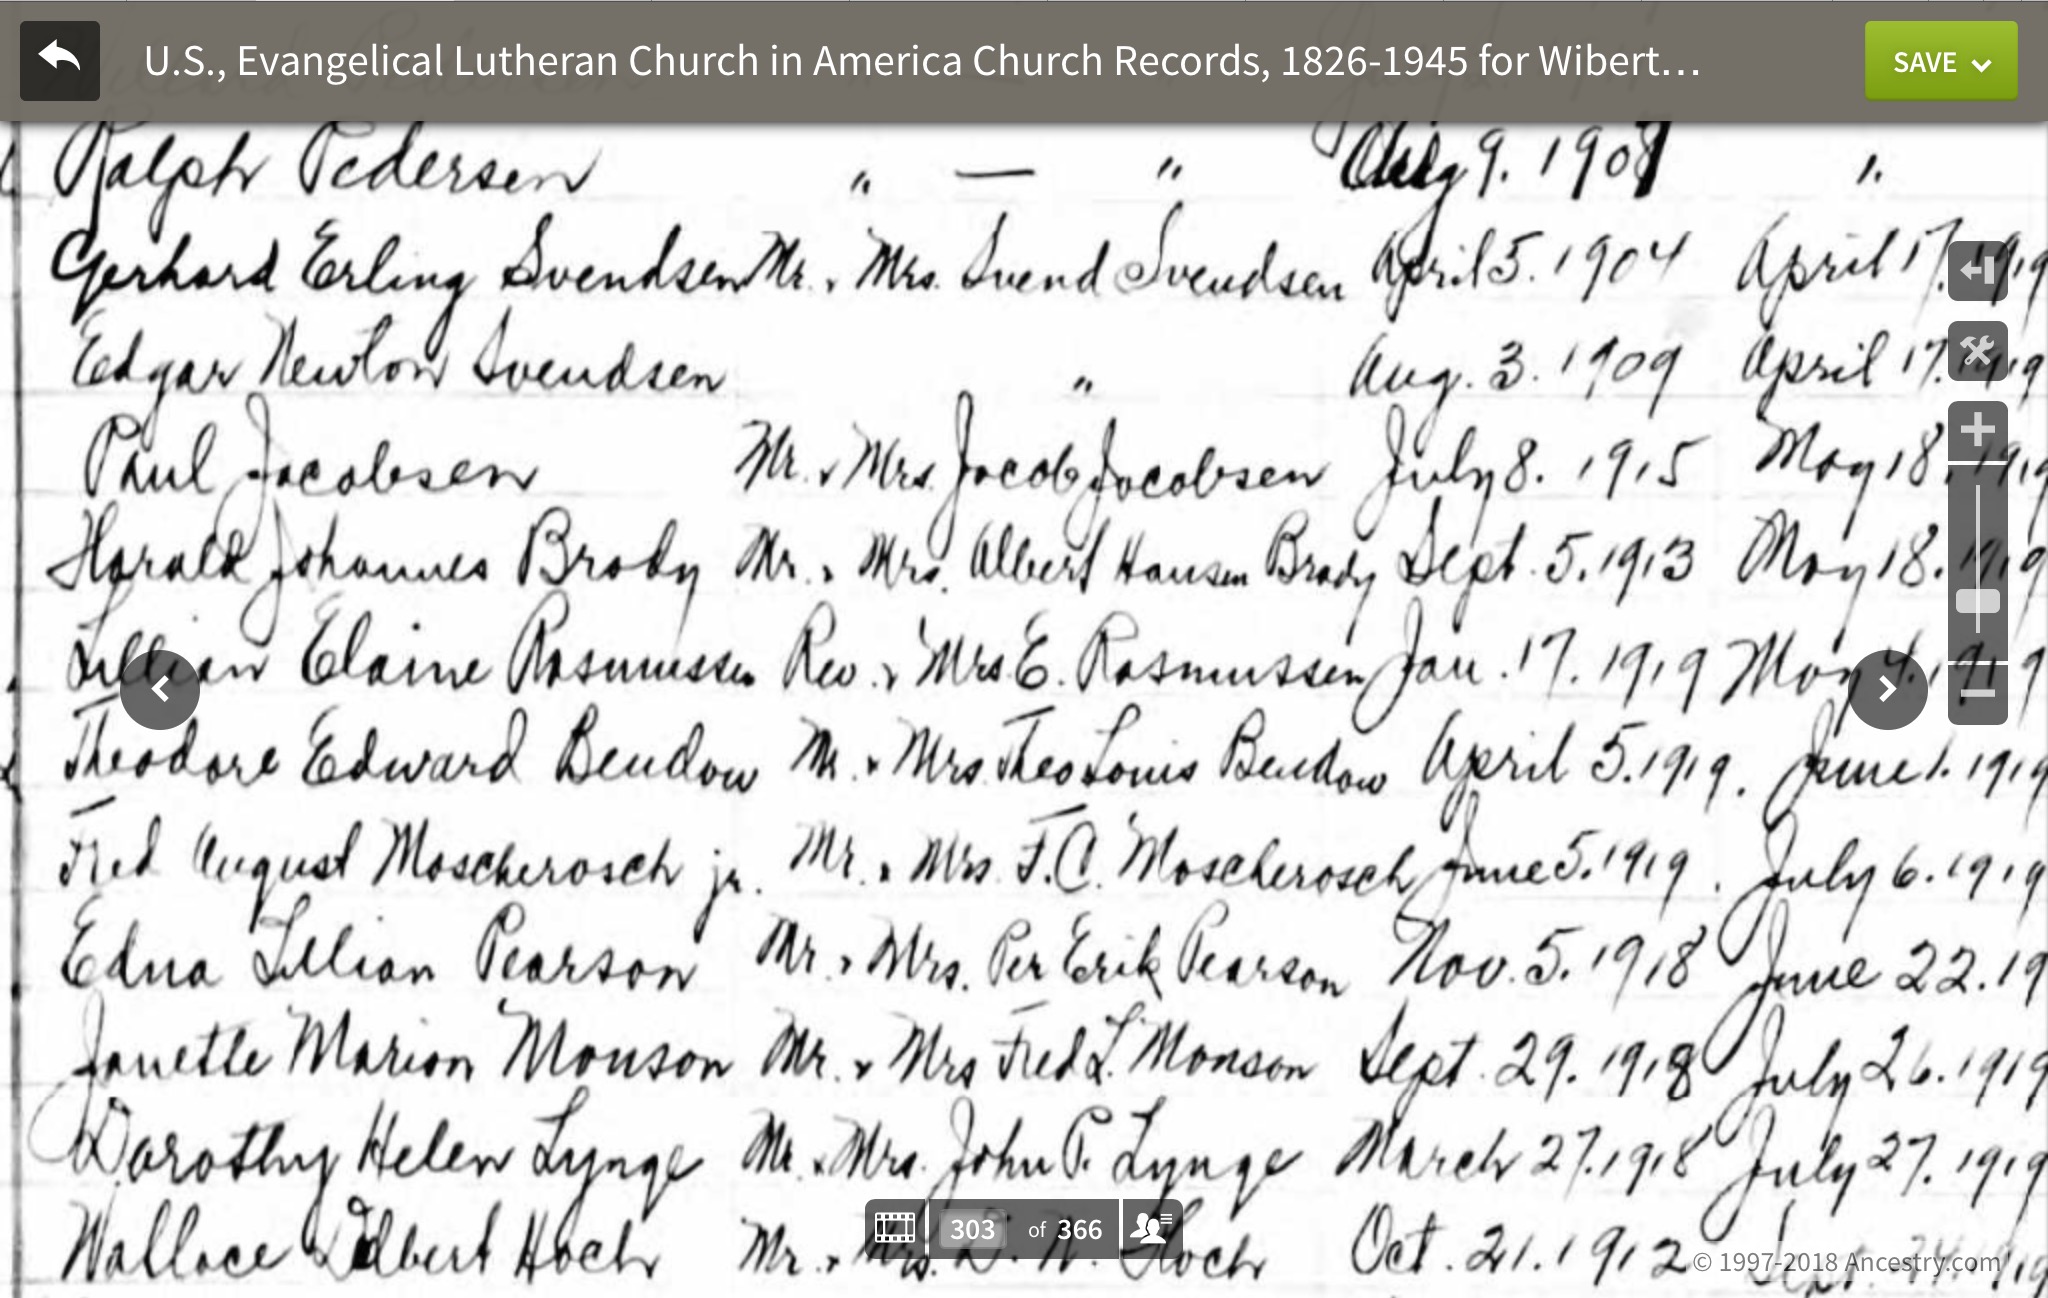 U.S., Evangelical Lutheran Church in America Church Records, 1826-1945 for Wibert...
SAVE
Ralph Pedersen " — " Aug 9. 1908 ".
Gerhard Erling Svendsen Mr. & Mrs. Svend Svendsen April 5. 1904 April 17. 1919
Edgar Newton Svendsen " Aug. 3. 1909 April 17. 1919
Paul Jacobsen Mr. & Mrs. Jacob Jacobsen July 8. 1915 May 18. 1919
Harald Johannes Brady Mr. & Mrs. Albert Hansen Brady Sept. 5. 1913 May 18. 1919
Lillian Elaine Rasmussen Rev. & Mrs. E. Rasmussen Jan. 17. 1919 May 4. 1919
Theodore Edward Bendow Mr. & Mrs. Theo Louis Bendow April 5. 1919. June 1. 1919
Fred August Moscherosch jr. Mr. & Mrs. F.C. Moscherosch June 5. 1919. July 6. 1919
Edna Lillian Pearson Mr. & Mrs. Per Erik Pearson Nov. 5. 1918 June 22. 19
Janette Marion Monson Mr. & Mrs Fred L. Monson Sept. 29. 1918 July 26. 1919
Dorothy Helen Lynge Mr. & Mrs. John P. Lynge March 27. 1918 July 27. 1919
Wallace Hoch Mr. & Mrs. D. W. Hoch Oct. 21. 1912
303 of 366
© 1997-2018 Ancestry.com